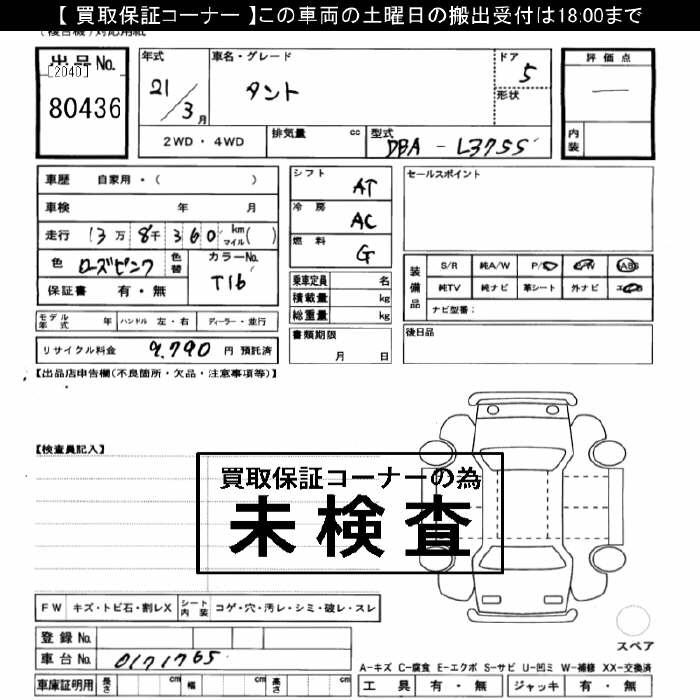 【 買取保証コーナー 】この車両の土曜日の搬出受付は18:00まで
出品No.
[2040]
80436
年式
21/3月
車名・グレード
タント
ドア
5
形状
2WD・4WD
排気量 cc
型式
DBA-L375S
評価点
—
内装
車歴 自家用・( )
車検 年 月
走行 13万8千360 km マイル( )
色 ローズピンク 色替
カラーNo.
T16
保証書 有・無
モデル年式 年 ハンドル 左・右 ディーラー・並行
リサイクル料金 9.790 円 預託済
シフト AT
冷房 AC
燃料 G
乗車定員 名
積載量 kg
総重量 kg
書類期限
月 日
セールスポイント
装備品
S/R 純A/W P/S P/W ABS
純TV 純ナビ 革シート 外ナビ エアB
ナビ型番:
後日品
【出品店申告欄(不良箇所・欠品・注意事項等)】
【検査員記入】
買取保証コーナーの為
未検査
FW キズ・トビ石・割レX シート内装 コゲ・穴・汚レ・シミ・破レ・スレ
登録No.
車台No. 0171765
車庫証明用 長さ cm 幅 cm 高さ cm
スペア
A-キズ C-腐食 E-エクボ S-サビ U-凹ミ W-補修 XX-交換済
工具 有・無 ジャッキ 有・無